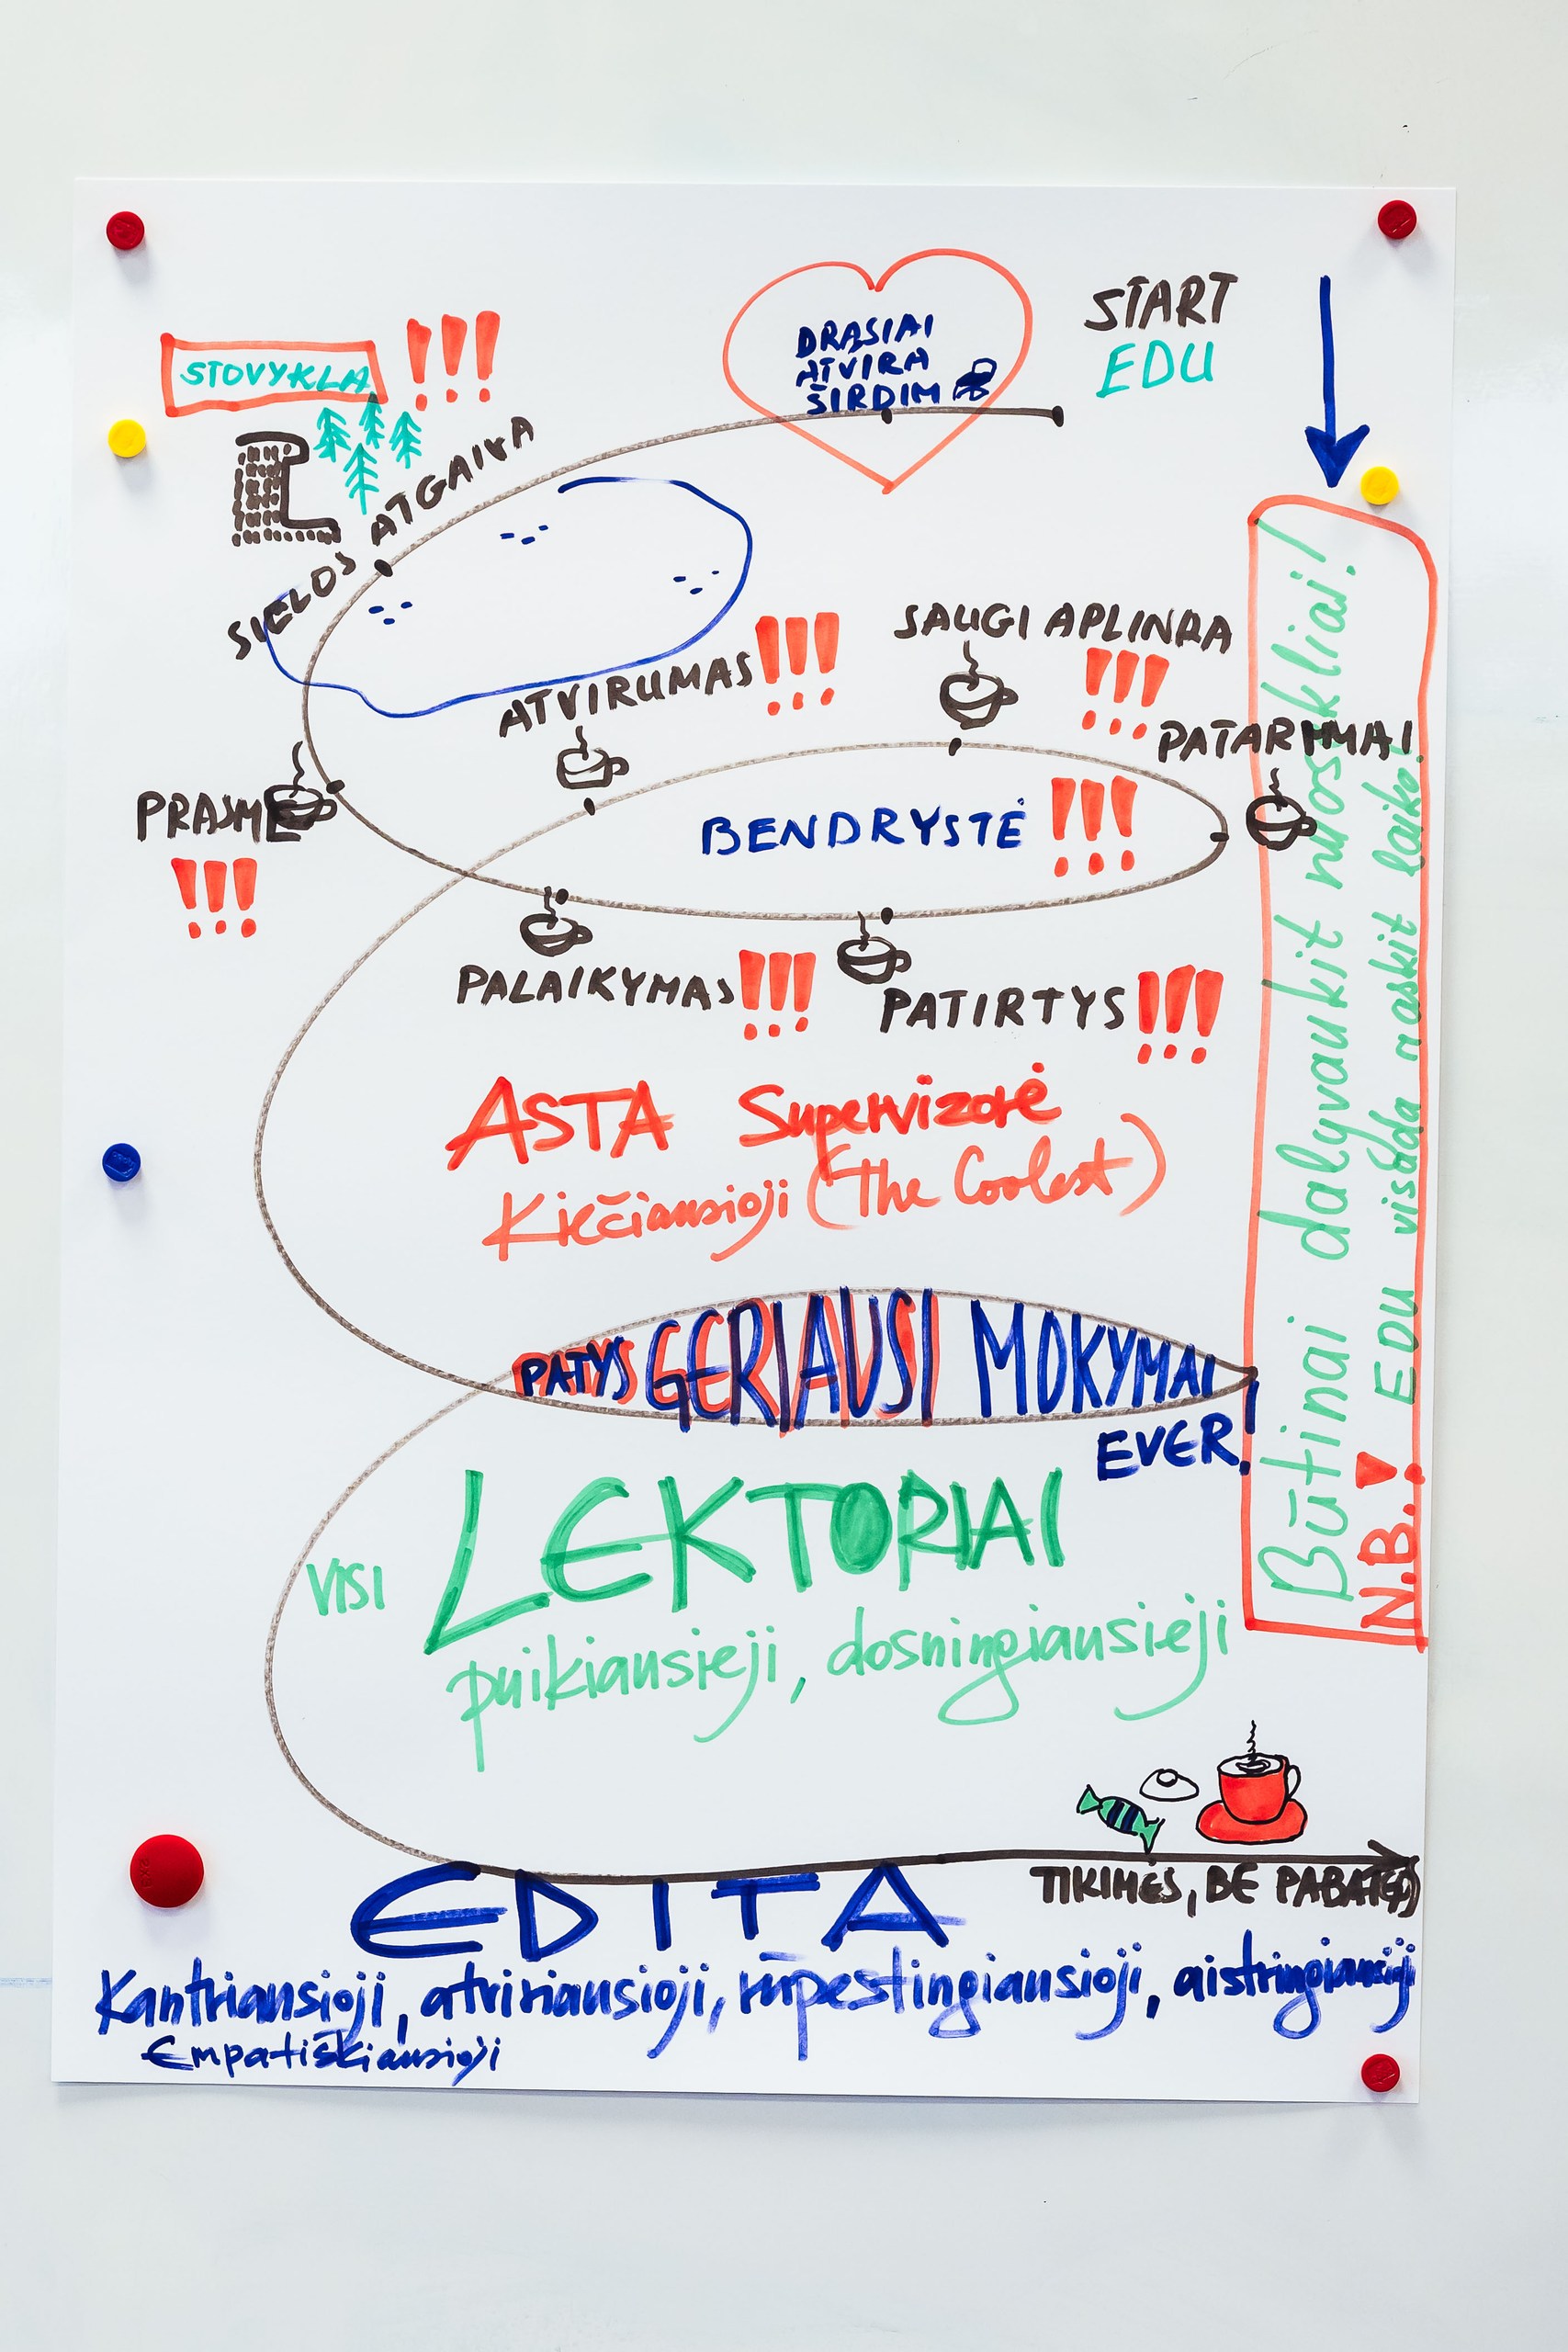 START
EDU
DRĄSIAI
ATVIRA
ŠIRDIM
STOVYKLA !!!
SIELOS ATGAIVA
ATVIRUMAS !!!
SAUGI APLINKA
!!!
PATARIMAI
PRASMĖ
!!!
BENDRYSTĖ !!!
PALAIKYMAS !!!
PATIRTYS !!!
ASTA Supervizorė
Kiečiausioji (The Coolest)
PATYS GERIAUSI MOKYMAI
EVER.
VISI LEKTORIAI
puikiausieji, dosningiausieji
Būtinai dalyvaukit nuoskliai!
N.B. EDU visada raskit laiko!
TIKIMĖS, BE PABAIGOS
EDITA
Kantriausioji, atviriausioji, rūpestingiausioji, aistringiausioji
Empatiškiausioji